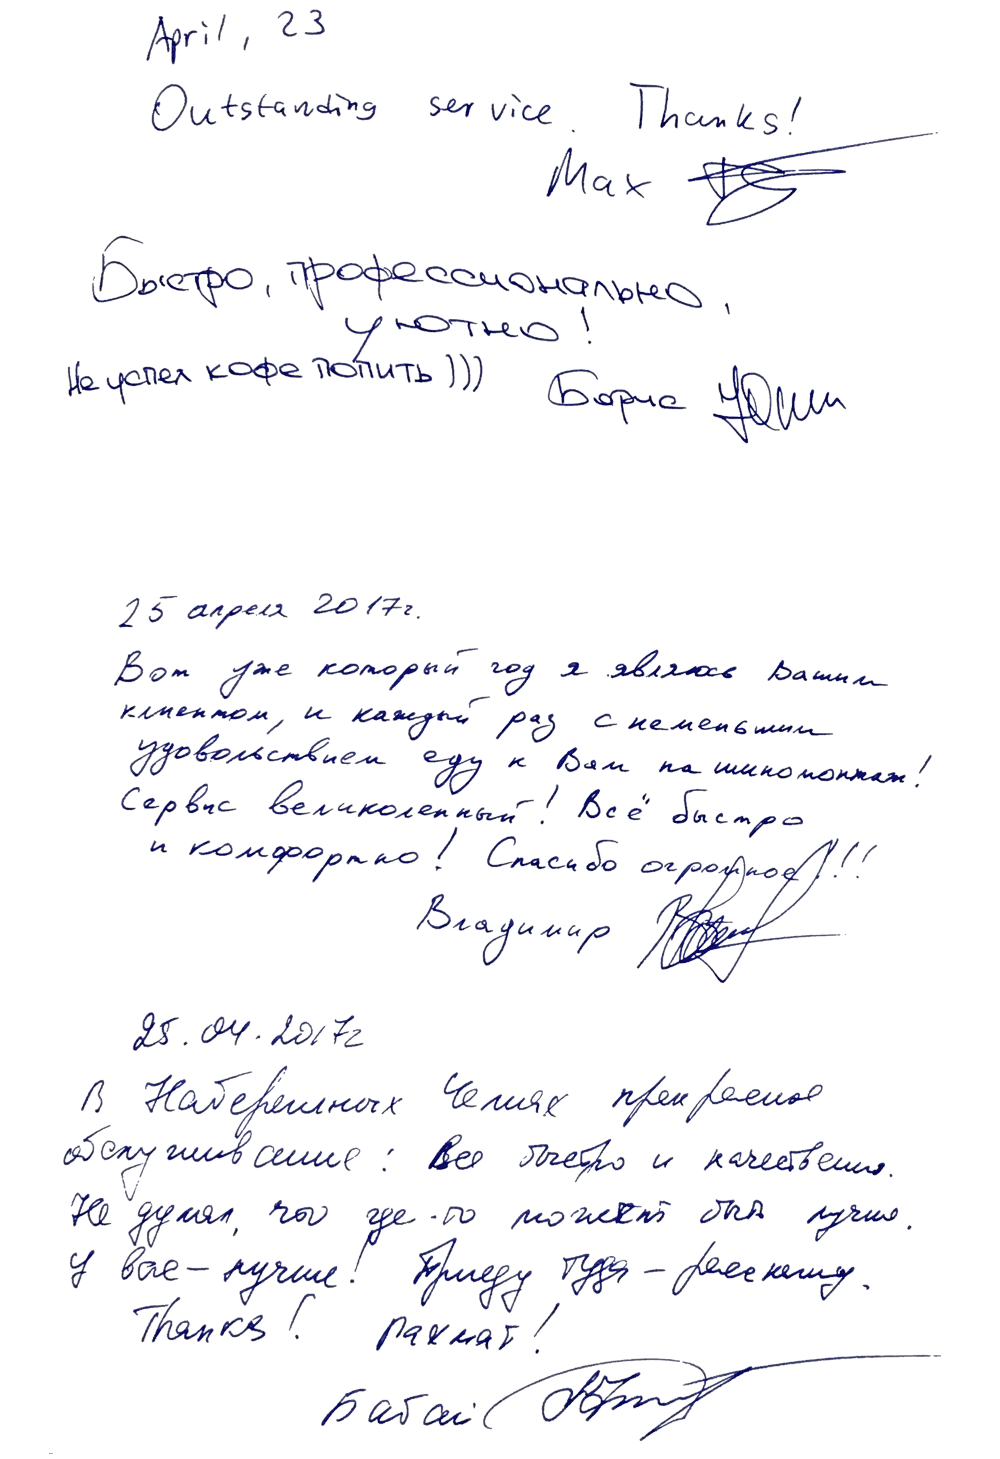 April, 23
Outstanding service. Thanks!
Max
Быстро, профессионально,
уютно!
Не успел кофе попить )))
Борис
25 апреля 2017г.
Вот уже который год я являюсь Вашим
клиентом, и каждый раз с неменьшим
удовольствием еду к Вам на шиномонтаж!
Сервис великолепный! Всё быстро
и комфортно! Спасибо огромное!!!
Владимир
25.04.2017г
В Набережных Челнах прекрасное
обслуживание: Все быстро и качественно.
Не думал, что где-то может быть лучше.
У вас - лучше! Приеду туда - расскажу.
Thanks! Рахмат!
Бабай